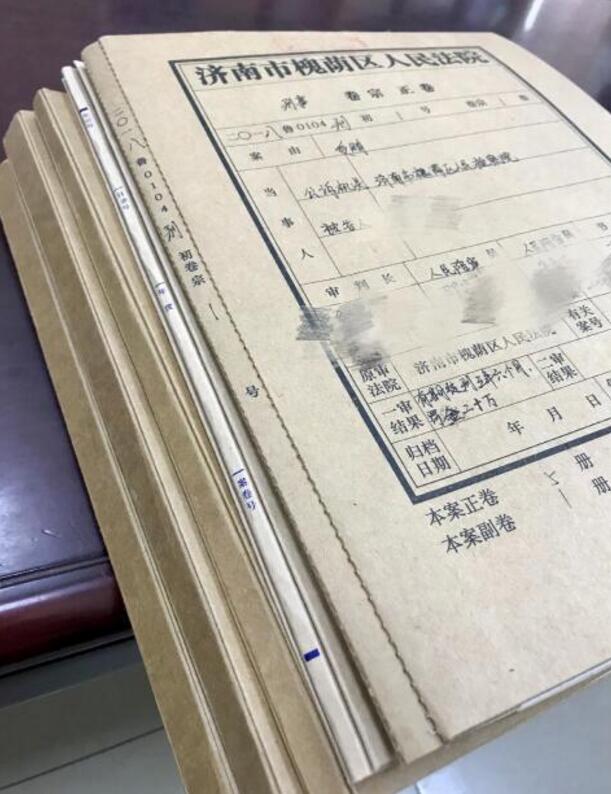 济南市槐荫区人民法院
刑事 卷宗正卷
二〇一八 鲁0104 刑 初 1 号 卷宗 1 卷
案由
当事人
公诉机关 济南市槐荫区人民检察院
被告人
审判长 人民陪审员 人民陪审员 书
原审法院 济南市槐荫区人民法院 有关案号
一审结果 有期徒刑三年六个月,罚金二十万 二审结果
归档日期 年 月 日
本案正卷 5 册
本案副卷 1 册
二〇一八鲁0104刑初卷宗1号
年度
案卷号